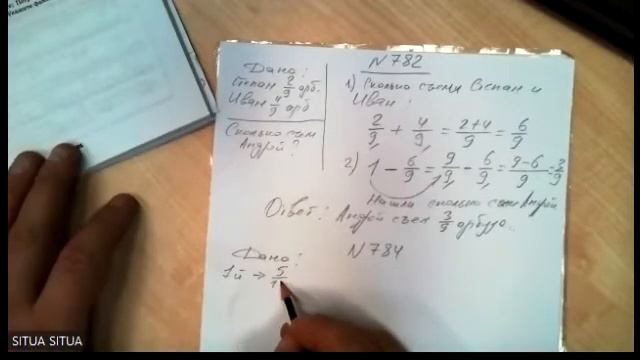 N 782
Дано:
Степан 2/9 арб.
Иван 4/9 арб
Сколько съел
Андрей?
1) Сколько съели Степан и
Иван:
2/9 + 4/9 = 2+4/9 = 6/9
2) 1 - 6/9 = 9/9 - 6/9 = 9-6/9 = 3/9
Нашли сколько съел Андрей
Ответ: Андрей съел 3/9 арбуза.
N 784
Дано:
1й → 5/1
SITUA SITUA